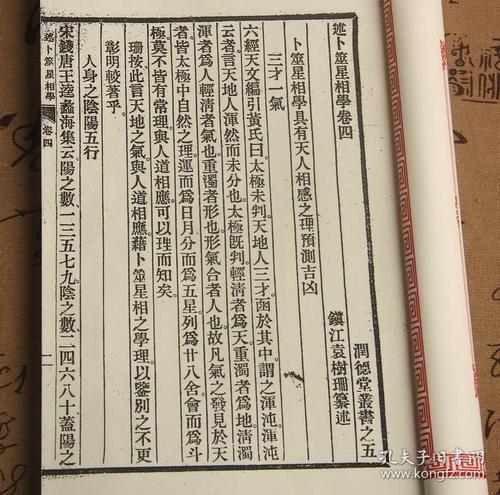 述卜筮星相學卷四
潤德堂叢書之五
鎭江袁樹珊纂述
卜筮星相學具有天人相感之理預測吉凶
三才一氣
六經天文編引黃氏曰太極未判天地人三才函於其中謂之渾沌渾沌
云者言天地人渾然而未分也太極旣判輕清者爲天重濁者爲地清濁
渾者爲人輕清者氣也重濁者形也形氣合者人也故凡氣之發見於天
者皆太極中自然之理運而爲日月分而爲五星列爲廿八舍會而爲斗
極莫不皆有常理與人道相應可以理而知矣
珊按此言天地之氣與人道相應藉卜筮星相之學理以鑒別之不更
彰明較著乎
人身之陰陽五行
宋錢唐王逵蠡海集云陽之數一三五七九陰之數二四六八十蓋陽之
述卜筮星相學 卷四 一
孔夫子旧书网